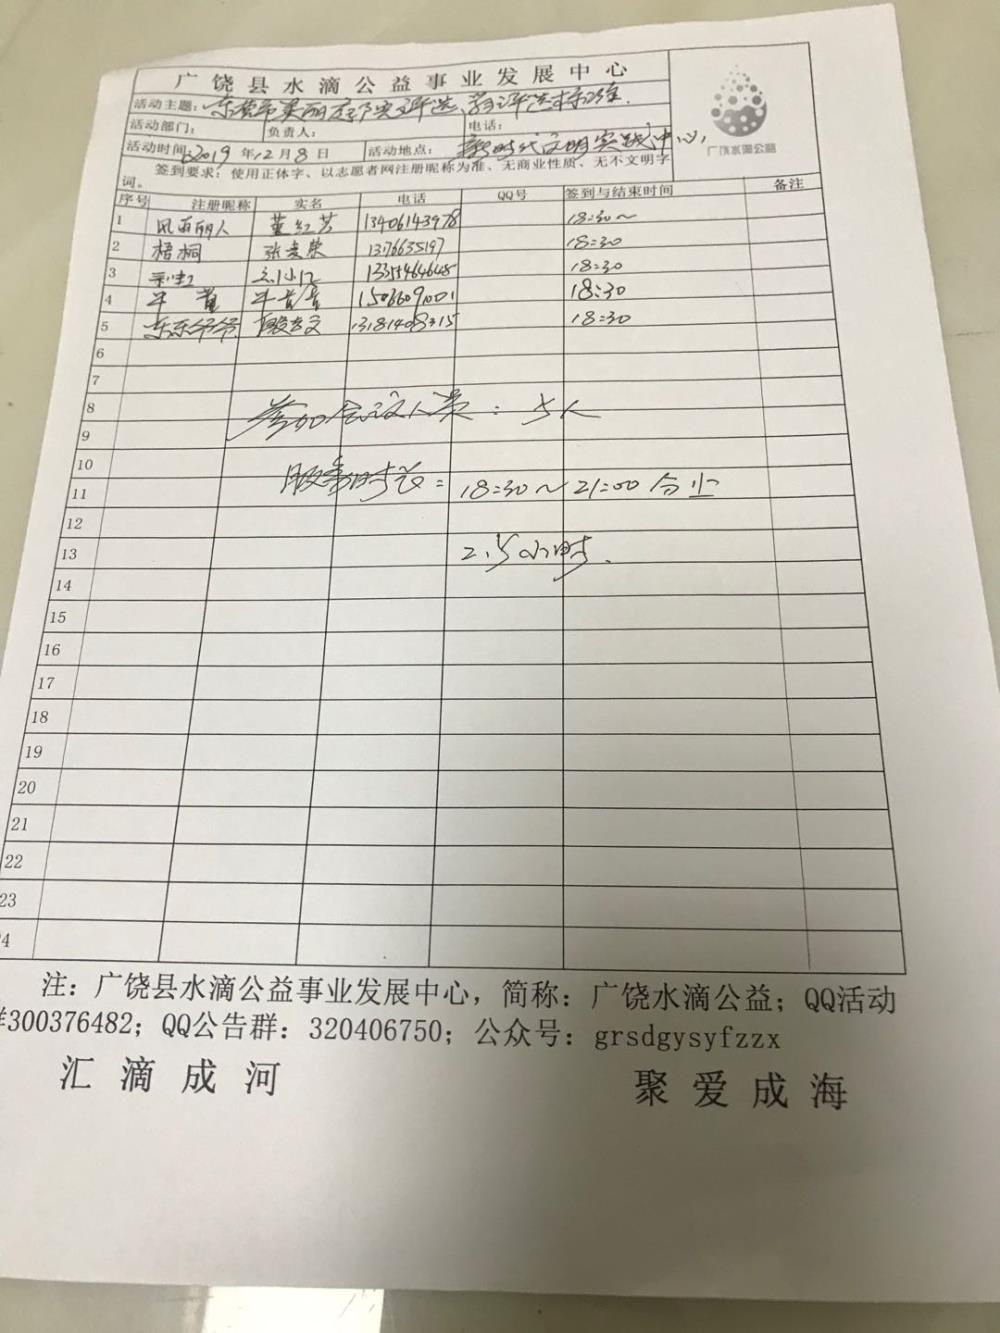 广饶县水滴公益事业发展中心
活动主题：东营市美丽庭院实评选
活动部门： 负责人： 电话：
活动时间：2019年12月8日 活动地点：新时代文明实践中心，
广饶水滴公益
签到要求：使用正体字、以志愿者网注册昵称为准、无商业性质、无不文明字
词。
序号 注册昵称 实名 电话 QQ号 签到与结束时间 备注
1 风雨丽人 董红芳 13406143978 18:30~
2 梧桐 18:30
3 18:30
4 牛 18:30
5 东东爷爷 18:30
6
7
8 参加会议人员：5人
9
10
11 服务时长：18:30~21:00 合计
12
13 2.5小时.
14
15
16
17
18
19
20
21
22
23
4
注：广饶县水滴公益事业发展中心，简称：广饶水滴公益；QQ活动
群300376482；QQ公告群：320406750；公众号：grsdgysyfzzx
汇滴成河 聚爱成海